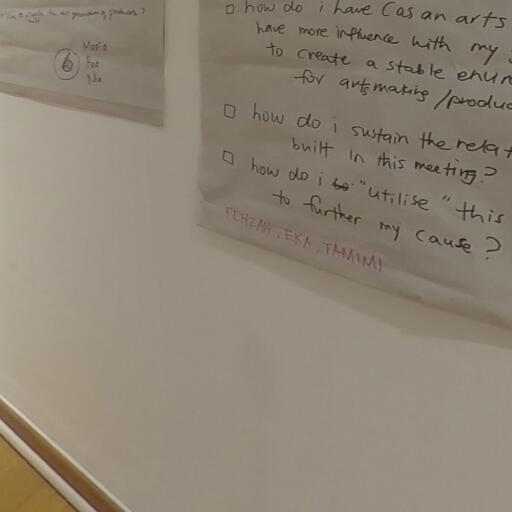 how do i have (as an arts
have more influence with my
to create a stable
for artsmaking/produc
how do i sustain the relat
built in this meeting?
how do i "utilise" this
to further my cause?
FEHZAH, EKA, TAMIMI
6
Maria